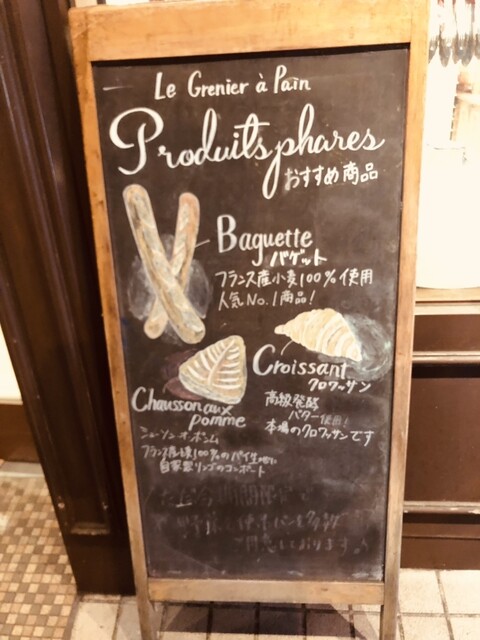 Le Grenier à Pain
Produits phares
おすすめ商品
Baguette
バゲット
フランス産小麦100%使用
人気No.1商品!
Croissant
クロワッサン
高級発酵
バター使用!
本場のクロワッサンです
Chausson aux
pomme
ショーソン・オ・ポム
フランス産小麦100%のパイ生地に
自家製リンゴのコンポート
ただ今期間限定で
野菜を使ったパンを多数
ご用意しております♪